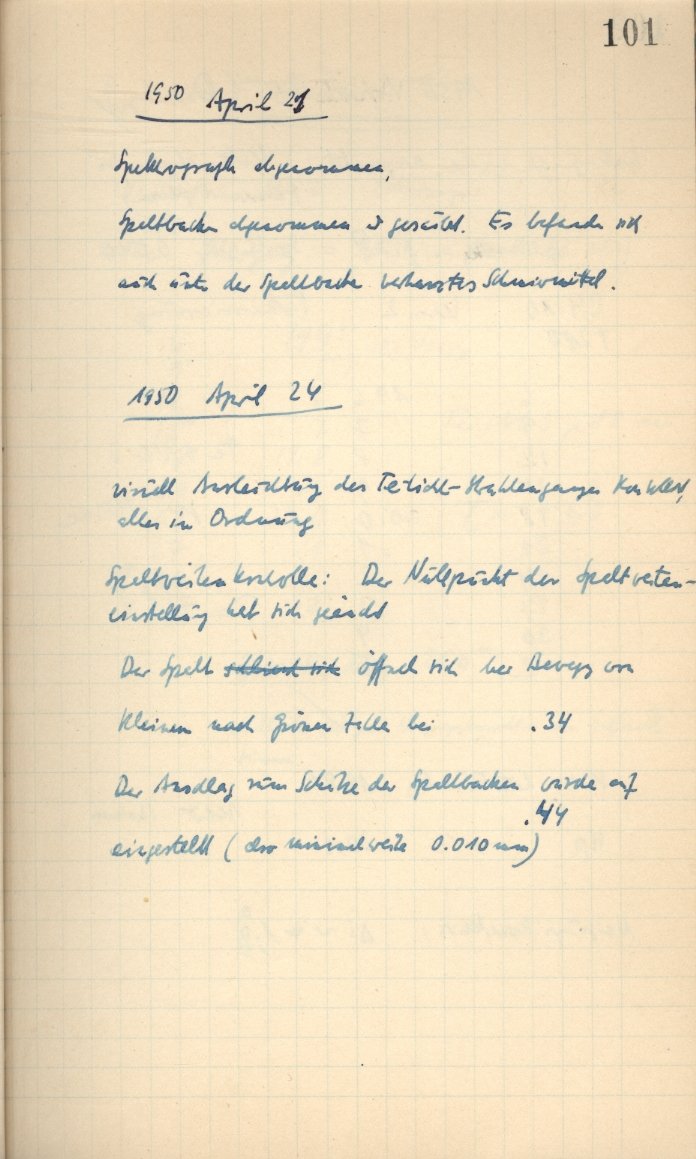 101
1950 April 21
Spektrograph abgenommen,
Spaltbacken abgenommen u gesäubert. Es befanden sich
auch unter der Spaltbacke verharztes Schmiermittel.
1950 April 24
visuell Ausleuchtung des Strahlenganges
alles in Ordnung
Spaltweiten Kontrolle: Der Nullpunkt der Spaltweiten-
einstellung hat sich geändert
Der Spalt öffnet sich bei Bewegg von
kleinen nach grossen Zahlen bei .34
Der Anschlag zum Schutze der Spaltbacken wurde auf
.44
eingestellt (also minimalweite 0.010 mm)